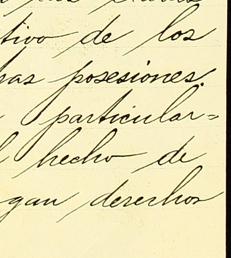 tivo de los
posesiones.
particular=
hecho de
gan derechos